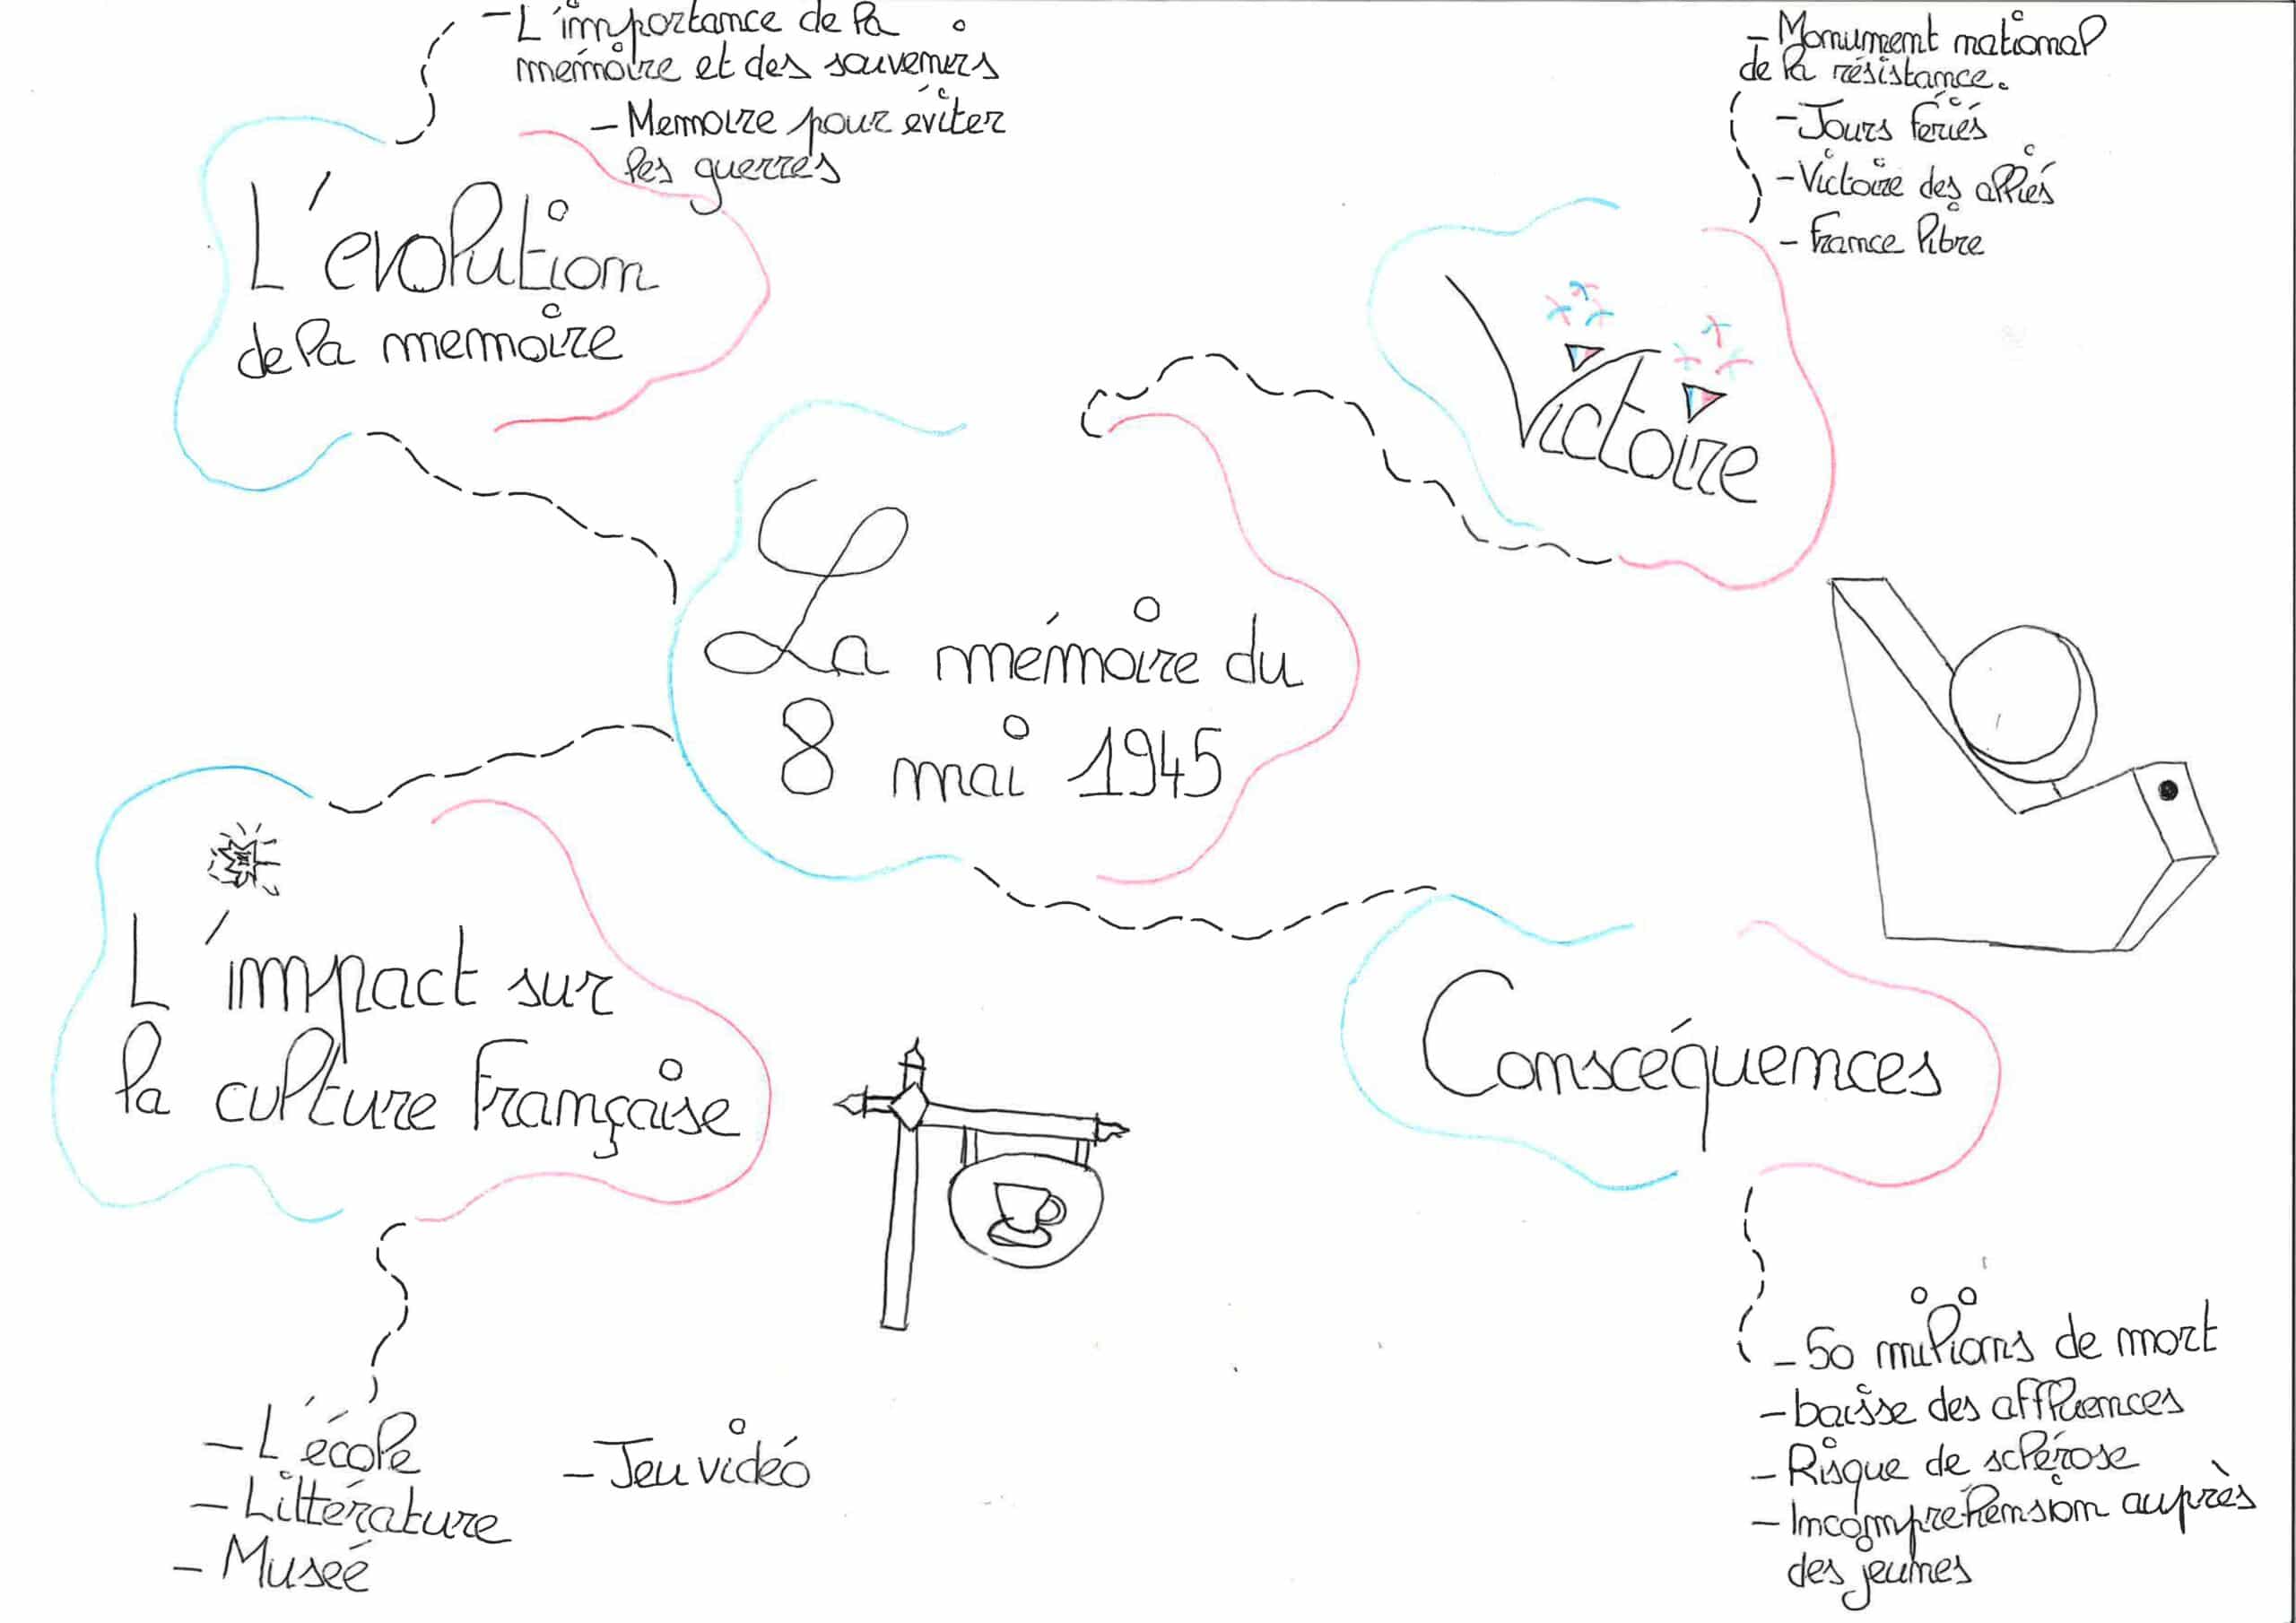 - L'importance de la
mémoire et des souvenirs
- Memoire pour éviter
les guerres
L'évolution
de la memoire
- Monument national
de la résistance.
- Jours feriés
- Victoire des alliés
- France libre
Victoire
La mémoire du
8 mai 1945
L'impact sur
la culture Française
- L'école
- Littérature
- Museé
- Jeu vidéo
Conscéquences
- 50 milions de mort
- baisse des affluences
- Risque de sclérose
- Incompréhension auprès
des jeunes